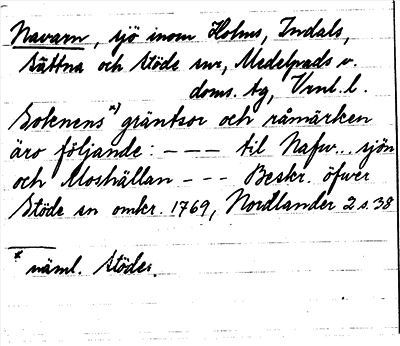 Navarn, sjö inom Holms, Indals,
Sättna och Stöde snr, Medelpads v.
doms. tg, Vrnl. l.
Soknens*) gräntsor och råmärken
äro följande: – – – til Nafw... sjön
och Moshällan – – – Beskr. öfwer
Stöde sn omkr. 1769, Nordlander 2 s. 38
* näml. Stödes.